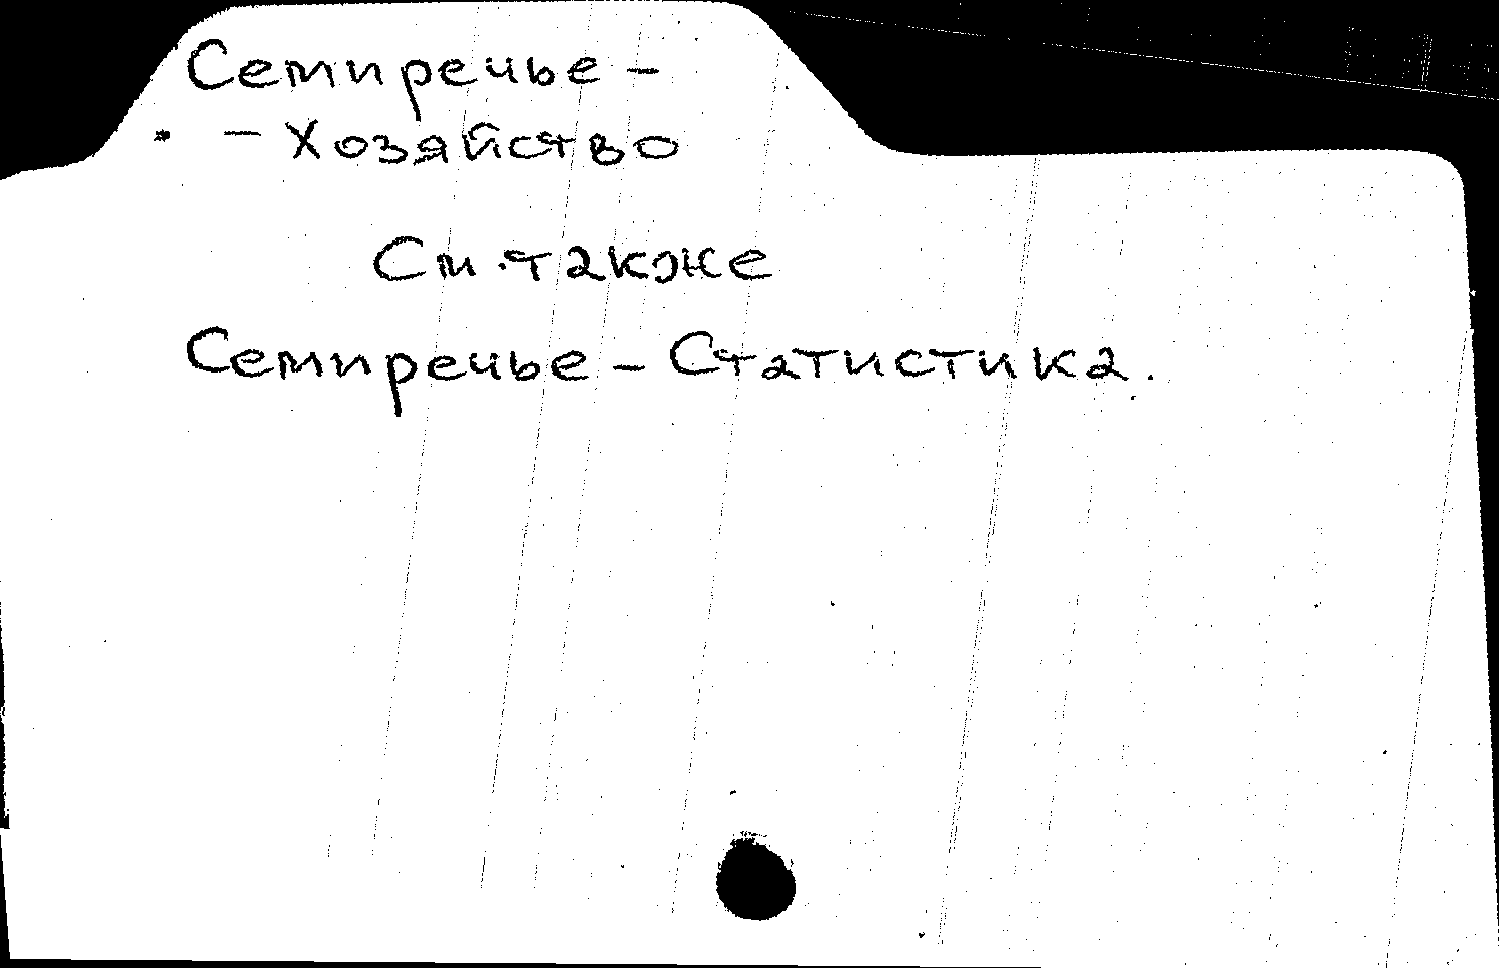 Семиречье -
- Хозяйство
См. также
Семиречье - Статистика.